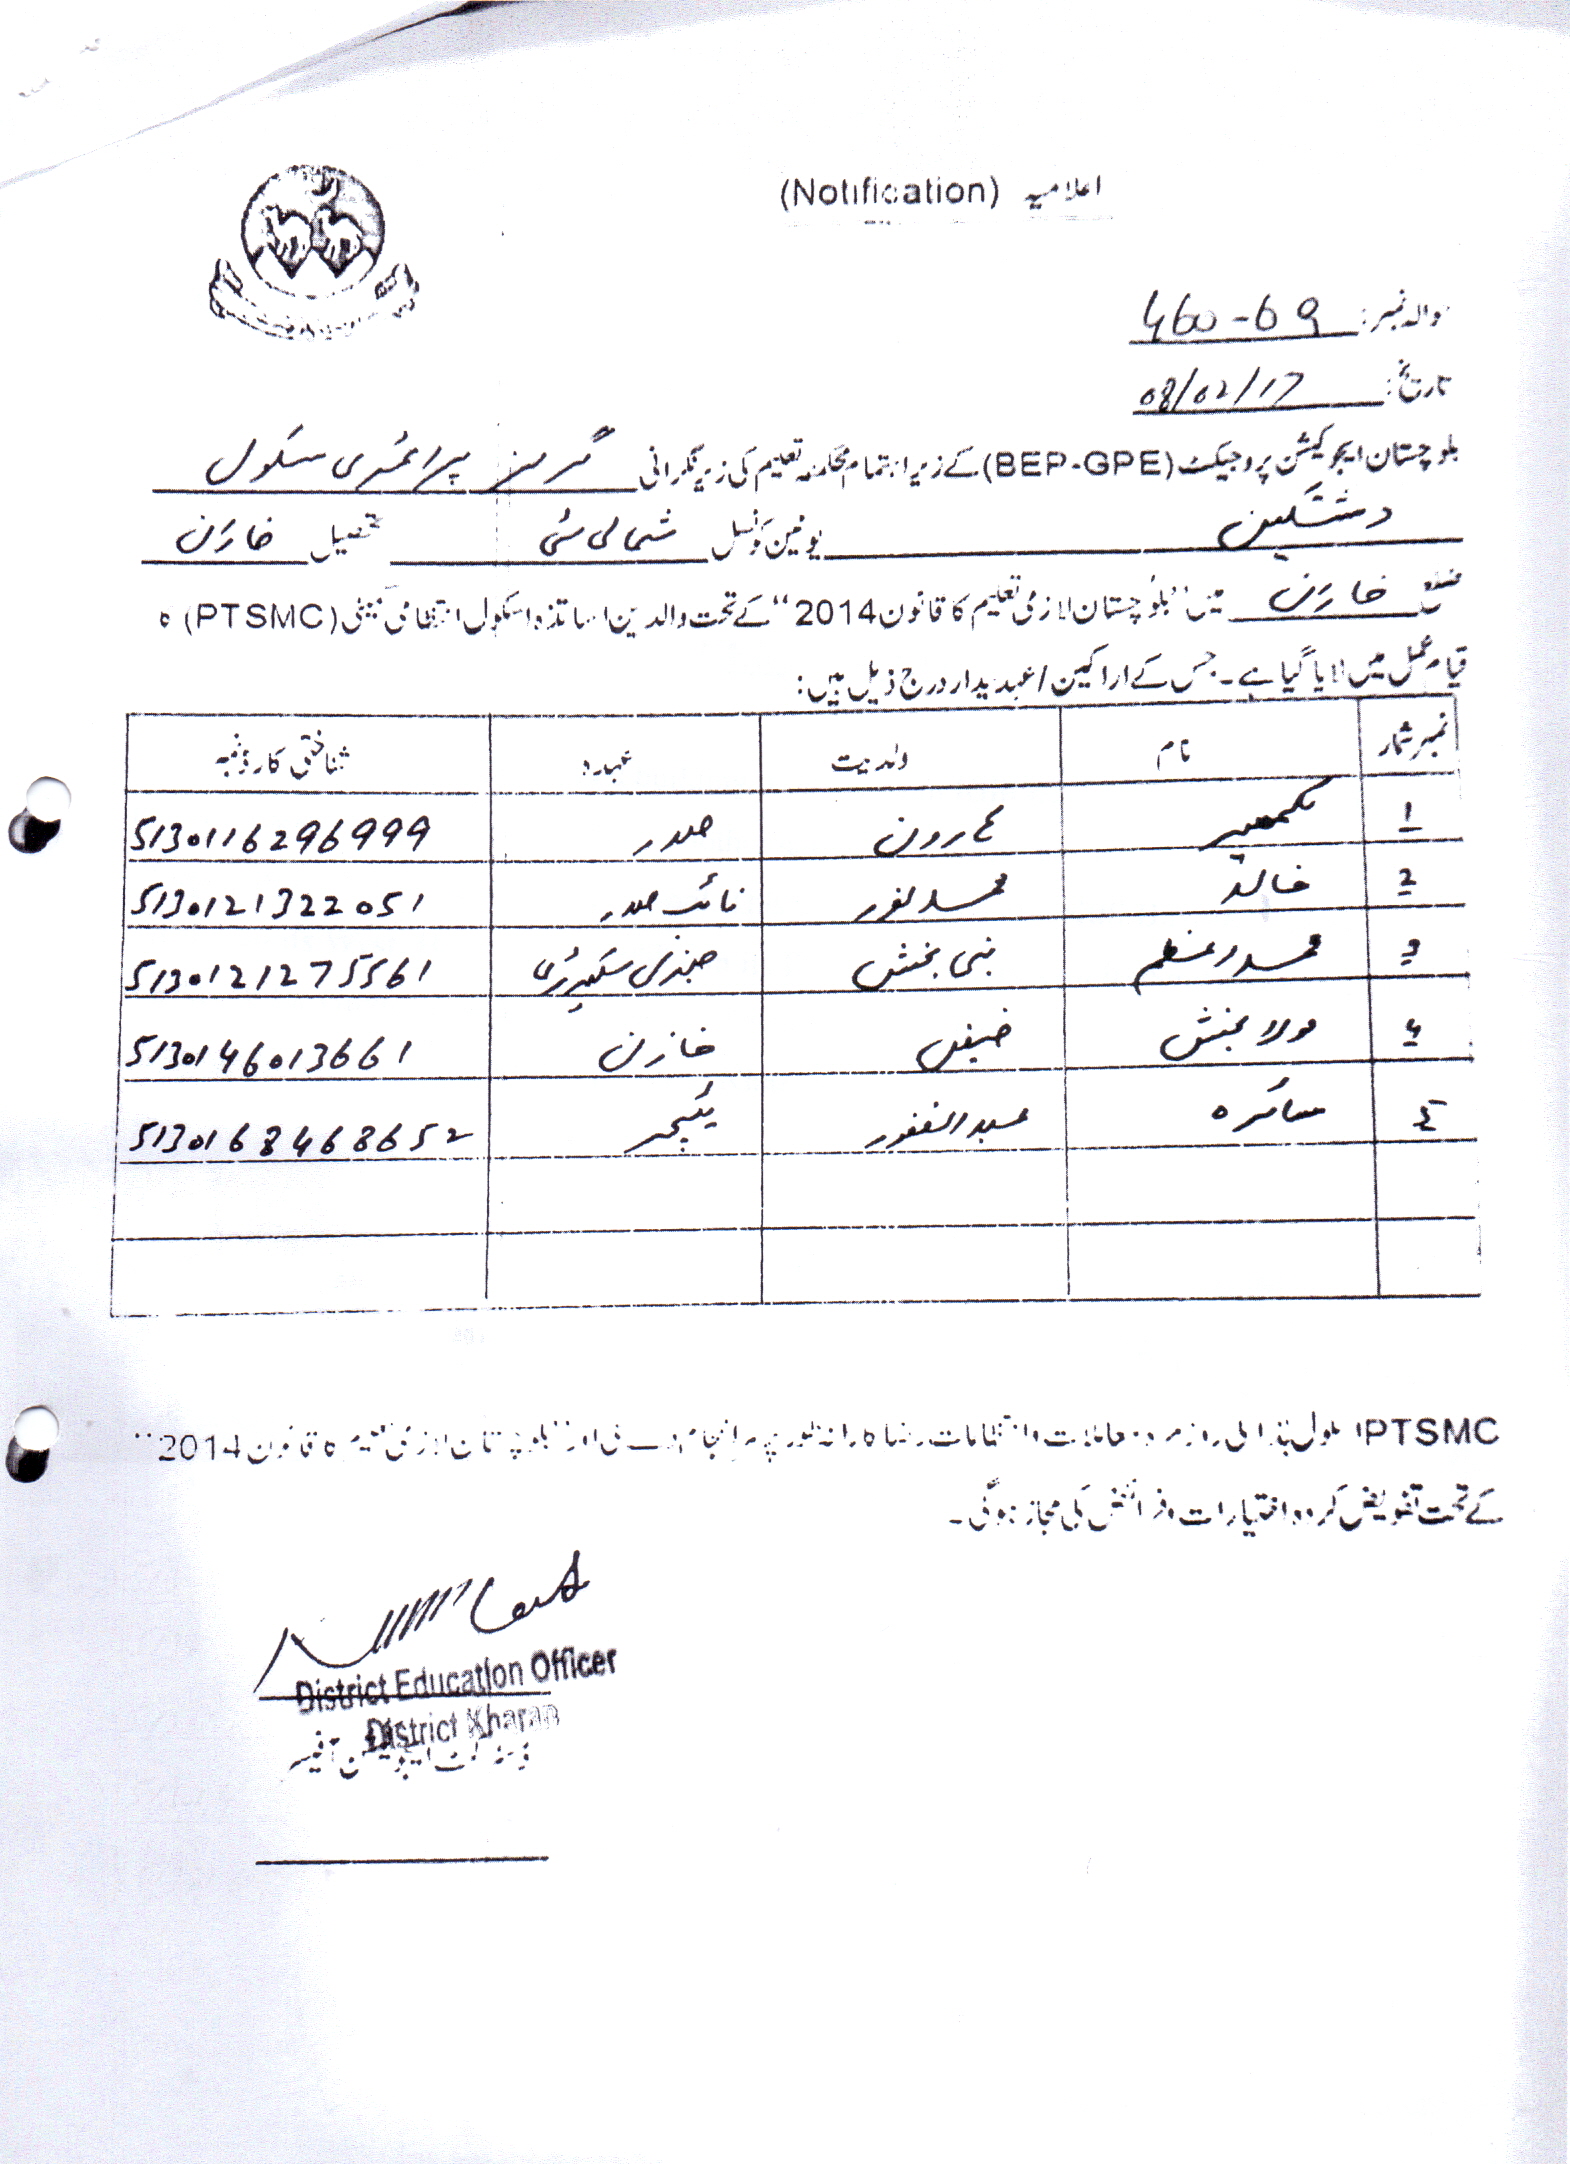 اعلامیہ (Notification)
حوالہ نمبر: 460-69
تاریخ: 08/02/17
بلوچستان ایجوکیشن پروجیکٹ (BEP-GPE) کے زیر اہتمام محکمہ تعلیم کی زیر نگرانی گرلز پرائمری سکول
یونین کونسل شمالی سٹی تحصیل خاران
ضلع خاران میں "بلوچستان لازمی تعلیم کا قانون 2014" کے تحت والدین اساتذہ اسکول انتظامی کمیٹی (PTSMC) کا
قیام عمل میں لایا گیا ہے۔ جس کے اراکین / عہدیدار درج ذیل ہیں:
نمبر شمار نام ولدیت عہدہ شناختی کارڈ نمبر
1 ہارون صدر 5130116296999
2 خالد محمد نور نائب صدر 5130121322051
3 محمد اعظم نبی بخش جنرل سیکریٹری 5130121275561
4 مولا بخش خازن 5130146013661
5 سائرہ عبدالغفور ٹیچر 5130168468652
PTSMC روزمرہ معاملات و انتظامات رضا کارانہ طور پر سر انجام دے گی اور "بلوچستان لازمی تعلیم کا قانون 2014"
کے تحت تفویض کردہ اختیارات و فرائض کی مجاز ہوگی۔
District Education Officer
District Kharan
ڈسٹرکٹ ایجوکیشن آفیسر